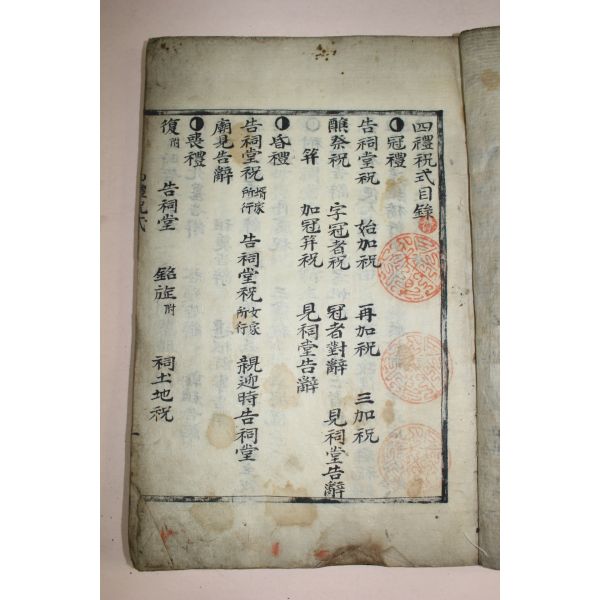 四禮祝式目錄
冠禮
告祠堂祝 始加祝 再加祝 三加祝
醮祭祝 字冠者祝 冠者對辭 見祠堂告辭
笄 加冠笄祝 見祠堂告辭
昏禮
告祠堂祝 壻家所行 告祠堂祝 女家所行 親迎時告祠堂
廟見告辭
喪禮
復附 告祠堂 銘旌附 祠土地祝
四禮祝式